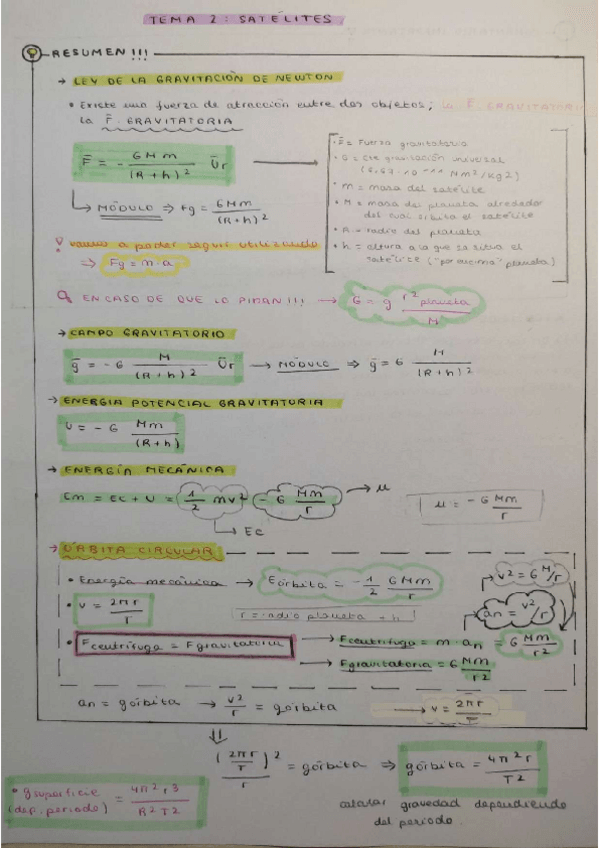 TEMA 2: SATÉLITES
RESUMEN!!!
→ LEY DE LA GRAVITACIÓN DE NEWTON
• Existe una fuerza de atracción entre dos objetos; la F. GRAVITATORIA
la F̄. GRAVITATORIA
F̄ = - GMm/(R+h)² Ūr
MÓDULO ⇒ Fg = GMm/(R+h)²
• F̄ = Fuerza gravitatoria
• G = cte gravitación universal
(6,67·10⁻¹¹ Nm²/Kg2)
• m = masa del satélite
• M = masa del planeta alrededor
del cual orbita el satélite
• R = radio del planeta
• h = altura a la que se sitúa el
satélite ("por encima" planeta)
vamos a poder seguir utilizando
⇒ Fg = m·a
EN CASO DE QUE LO PIDAN!!! → G = g r² planeta/M
→ CAMPO GRAVITATORIO
ḡ = - G M/(R+h)² Ūr → MÓDULO ⇒ ḡ = G M/(R+h)²
→ ENERGIA POTENCIAL GRAVITATORIA
U = - G Mm/(R+h)
→ ENERGÍA MECÁNICA
Em = Ec + U = 1/2 mv² - G Mm/r → u
u = - G Mm/r
→ Ec
→ ÓRBITA CIRCULAR
• Energía mecánica → Eórbita = - 1/2 G Mm/r
v² = G M/r
• v = 2πr/T
r = radio planeta + h
an = v²/r
• Fcentrífuga = Fgravitatoria → Fcentrífuga = m·an = G Mm/r²
→ Fgravitatoria = G Mm/r²
an = górbita → v²/r = górbita → v = 2πr/T
(2πr/T)²/r = górbita ⇒ górbita = 4π²r/T²
• gsuperficie (dep. periodo) = 4π²r3/R²T2
calcular gravedad dependiendo
del periodo.